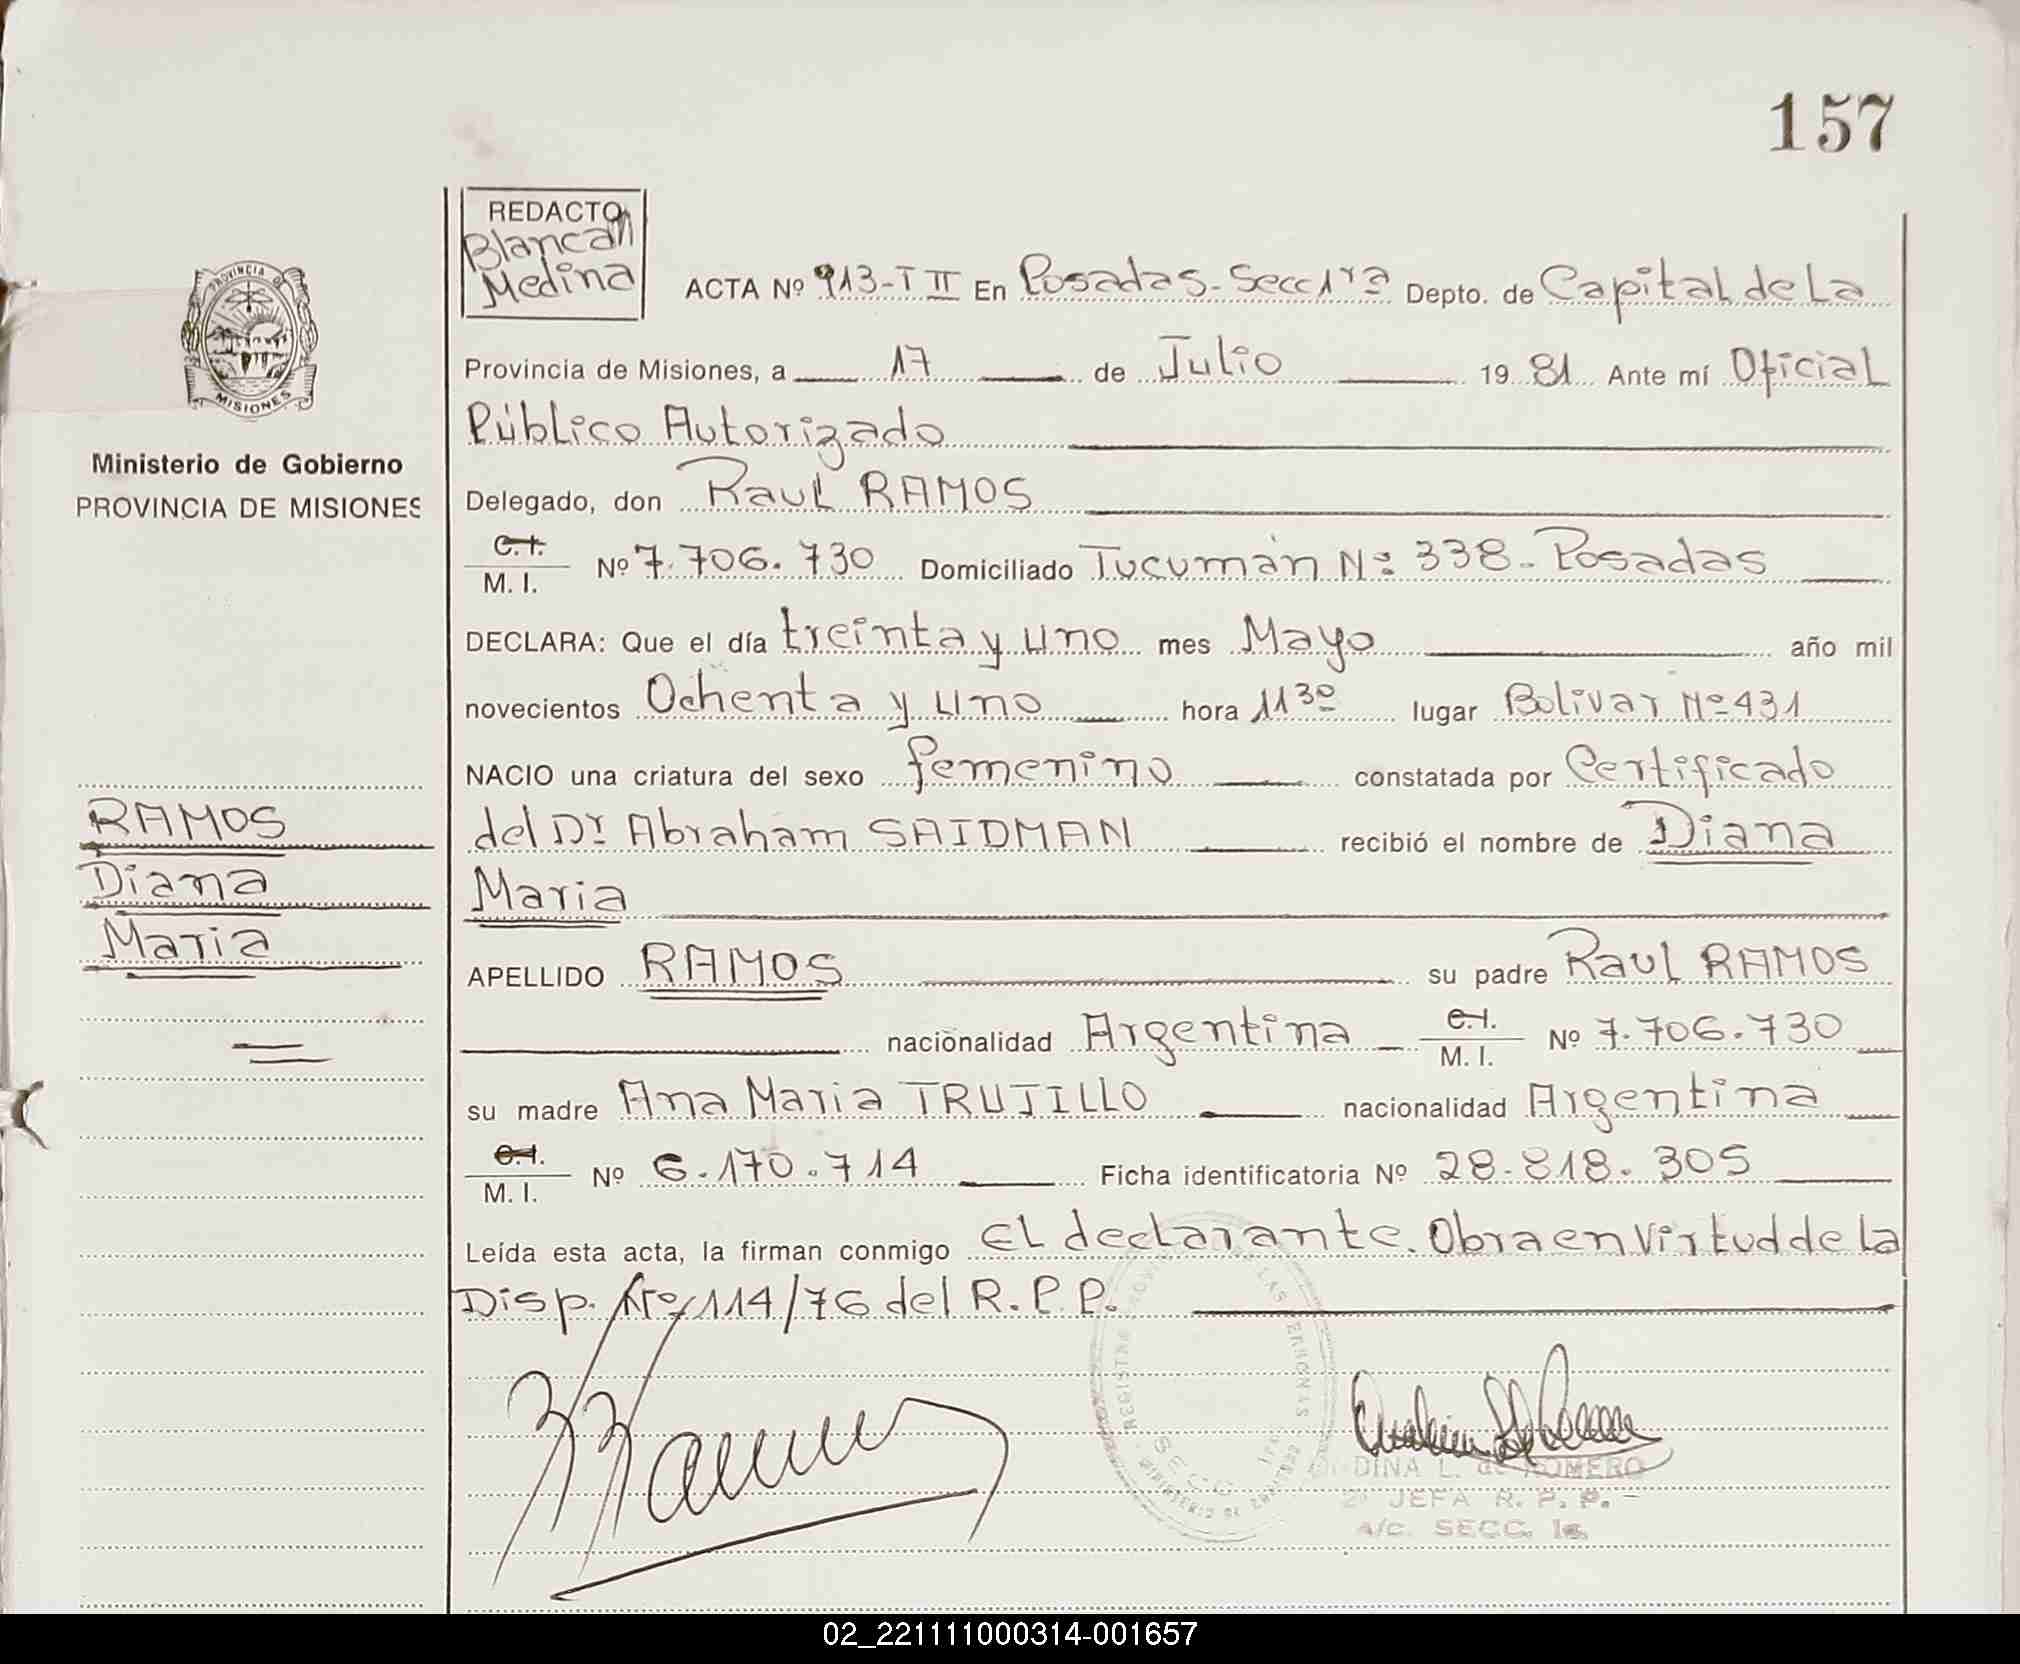 157
REDACTO
Blanca M
Medina
PROVINCIA DE
MISIONES
Ministerio de Gobierno
PROVINCIA DE MISIONES
RAMOS
Diana
Maria
ACTA Nº 913-T II En Posadas-Secc 1ra Depto. de Capital de La
Provincia de Misiones, a 17 de Julio 1981 Ante mí Oficial
Público Autorizado
Delegado, don Raul RAMOS
C.I. M. I. Nº 7.706.730 Domiciliado Tucumán Nº 338-Posadas
DECLARA: Que el día treinta y uno mes Mayo año mil
novecientos Ochenta y uno hora 11 30 lugar Bolivar Nº 431
NACIO una criatura del sexo femenino constatada por Certificado
del Dr Abraham SAIDMAN recibió el nombre de Diana
Maria
APELLIDO RAMOS su padre Raul RAMOS
nacionalidad Argentina C.I. M. I. Nº 7.706.730
su madre Ana Maria TRUJILLO nacionalidad Argentina
C.I. M. I. Nº 6.170.714 Ficha identificatoria Nº 28.818.305
Leída esta acta, la firman conmigo El declarante. Obra en Virtud de la
Disp. Nº 114/76 del R.P.P.
DINA L. de ROMERO
2º JEFA R. P. P.-
A/C. SECC. 1a.
02_221111000314-001657